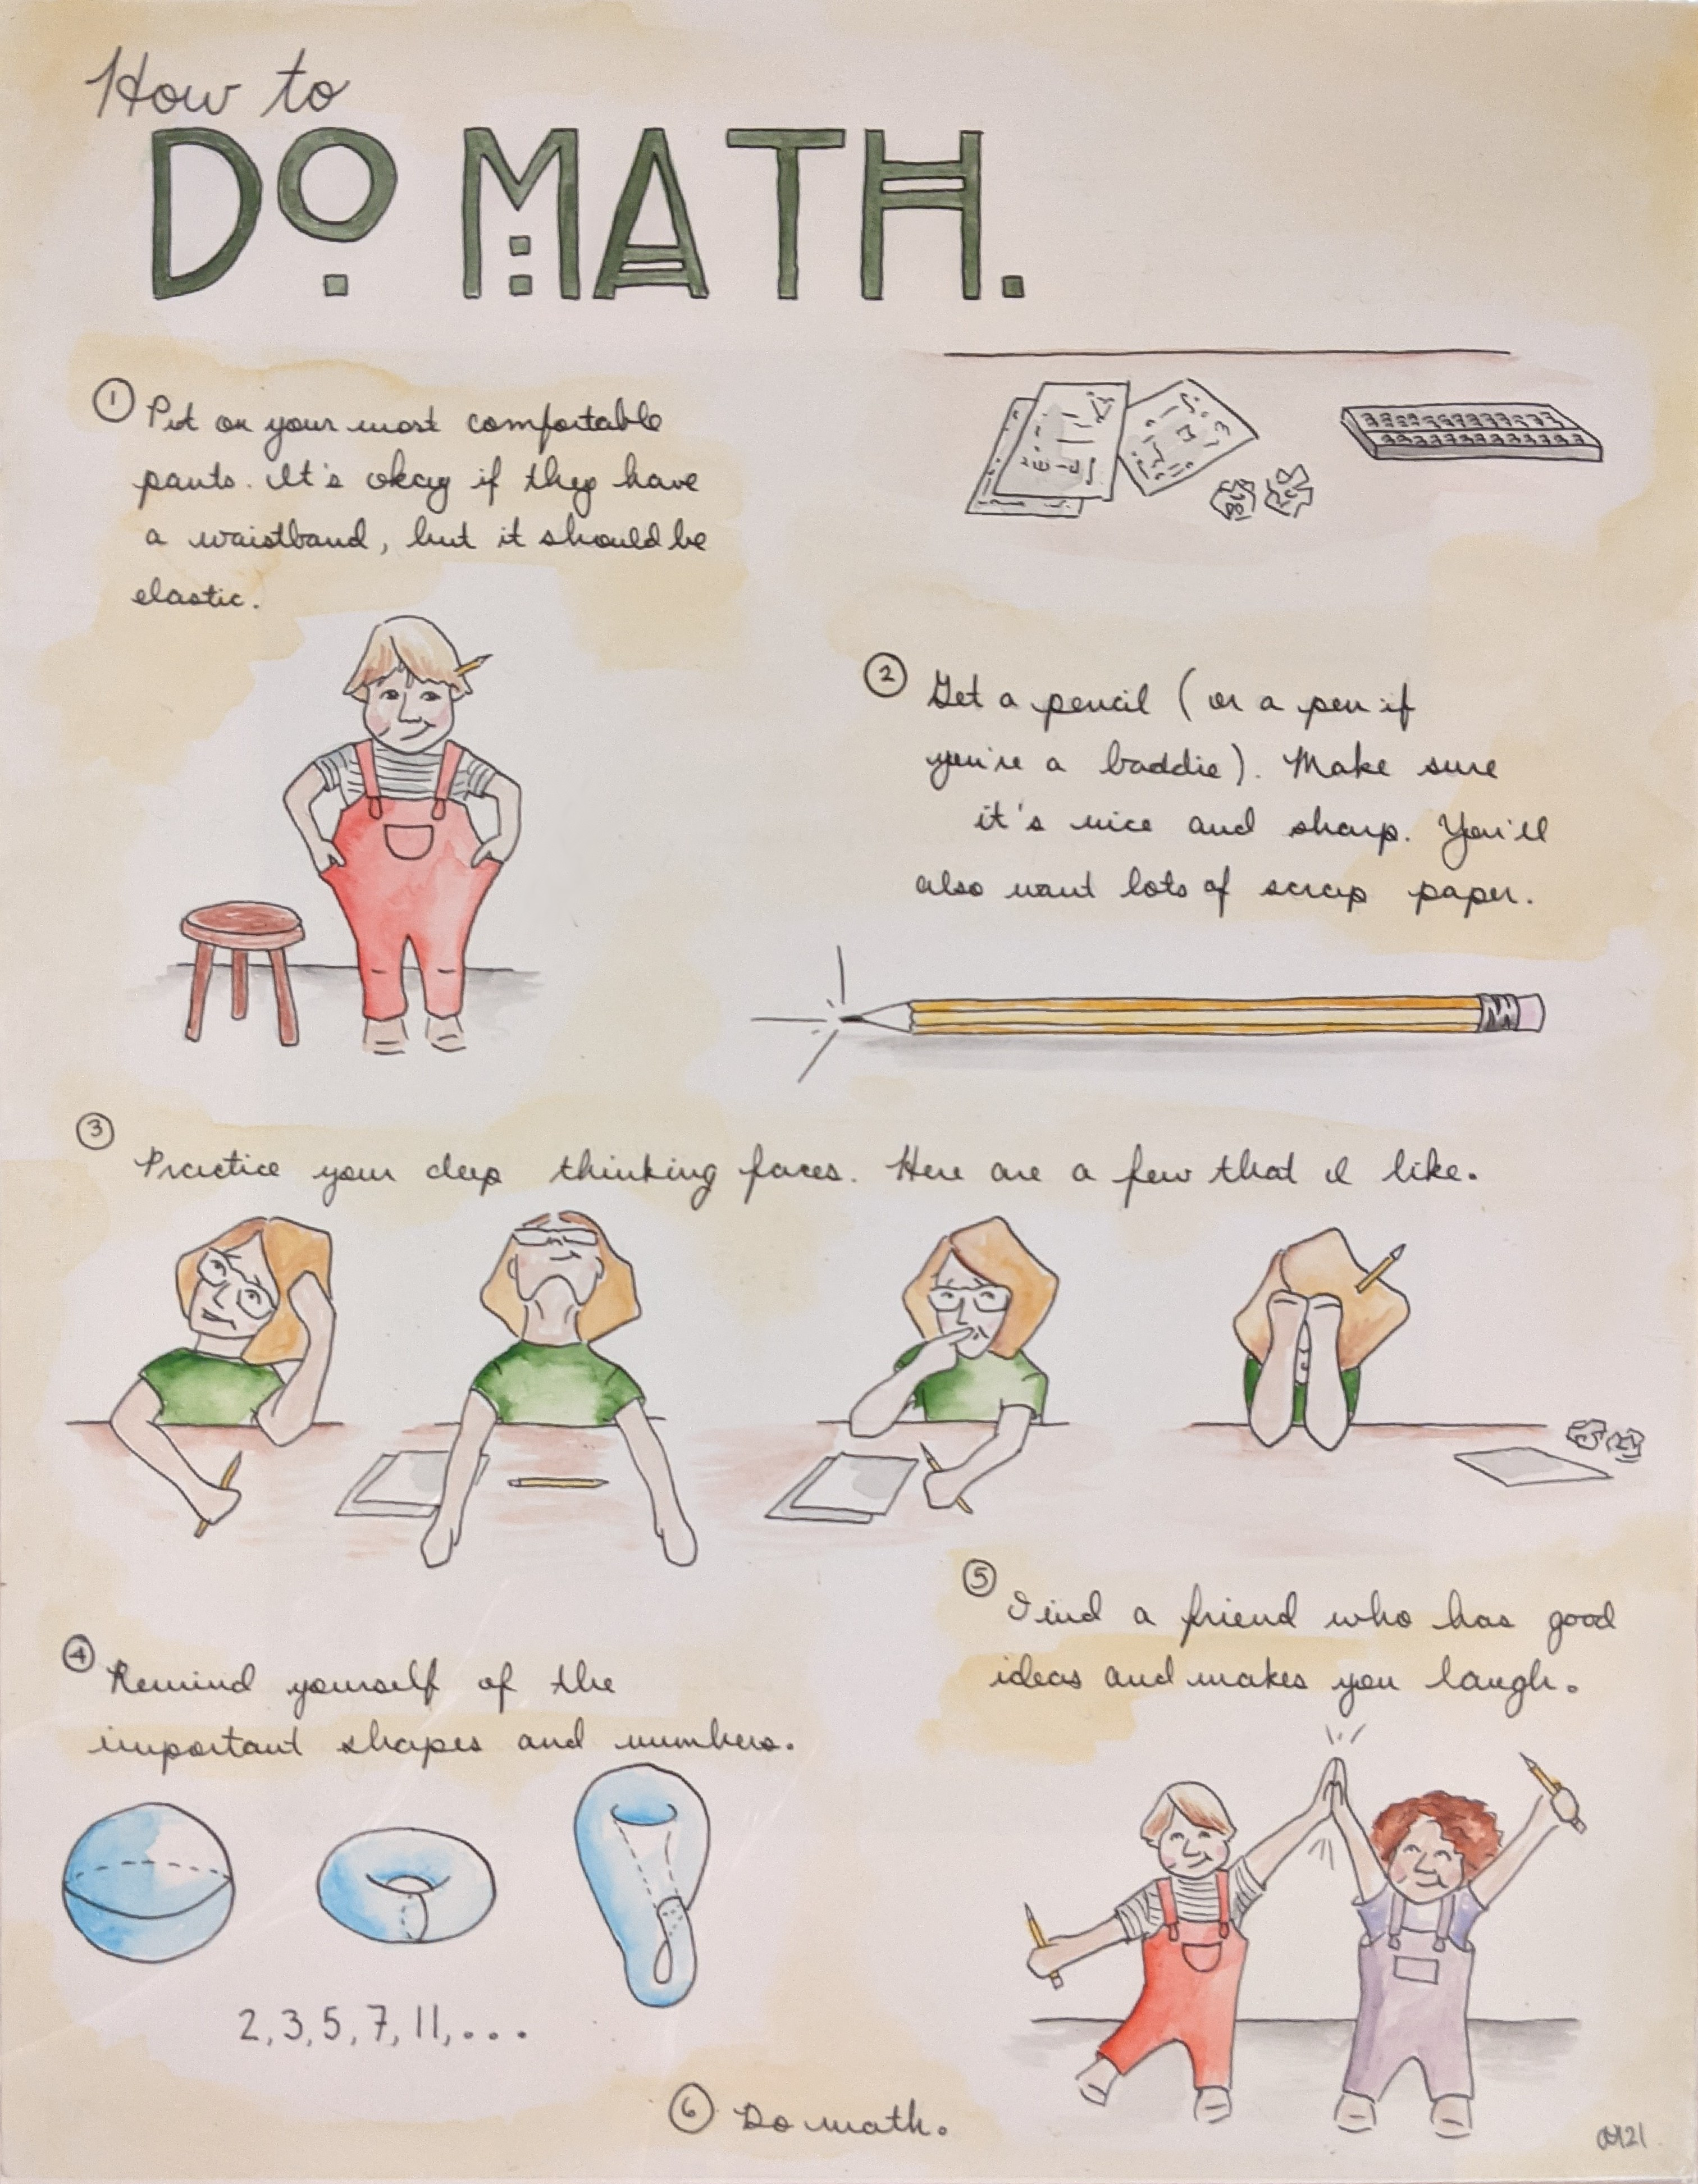 How to
DO MATH.
① Put on your most comfortable
pants. It's okay if they have
a waistband, but it should be
elastic.
② Get a pencil (or a pen if
you're a baddie). Make sure
it's nice and sharp. You'll
also want lots of scrap paper.
③ Practice your deep thinking faces. Here are a few that I like.
④ Remind yourself of the
important shapes and numbers.
2, 3, 5, 7, 11, ...
⑤ Find a friend who has good
ideas and makes you laugh.
⑥ Do math.